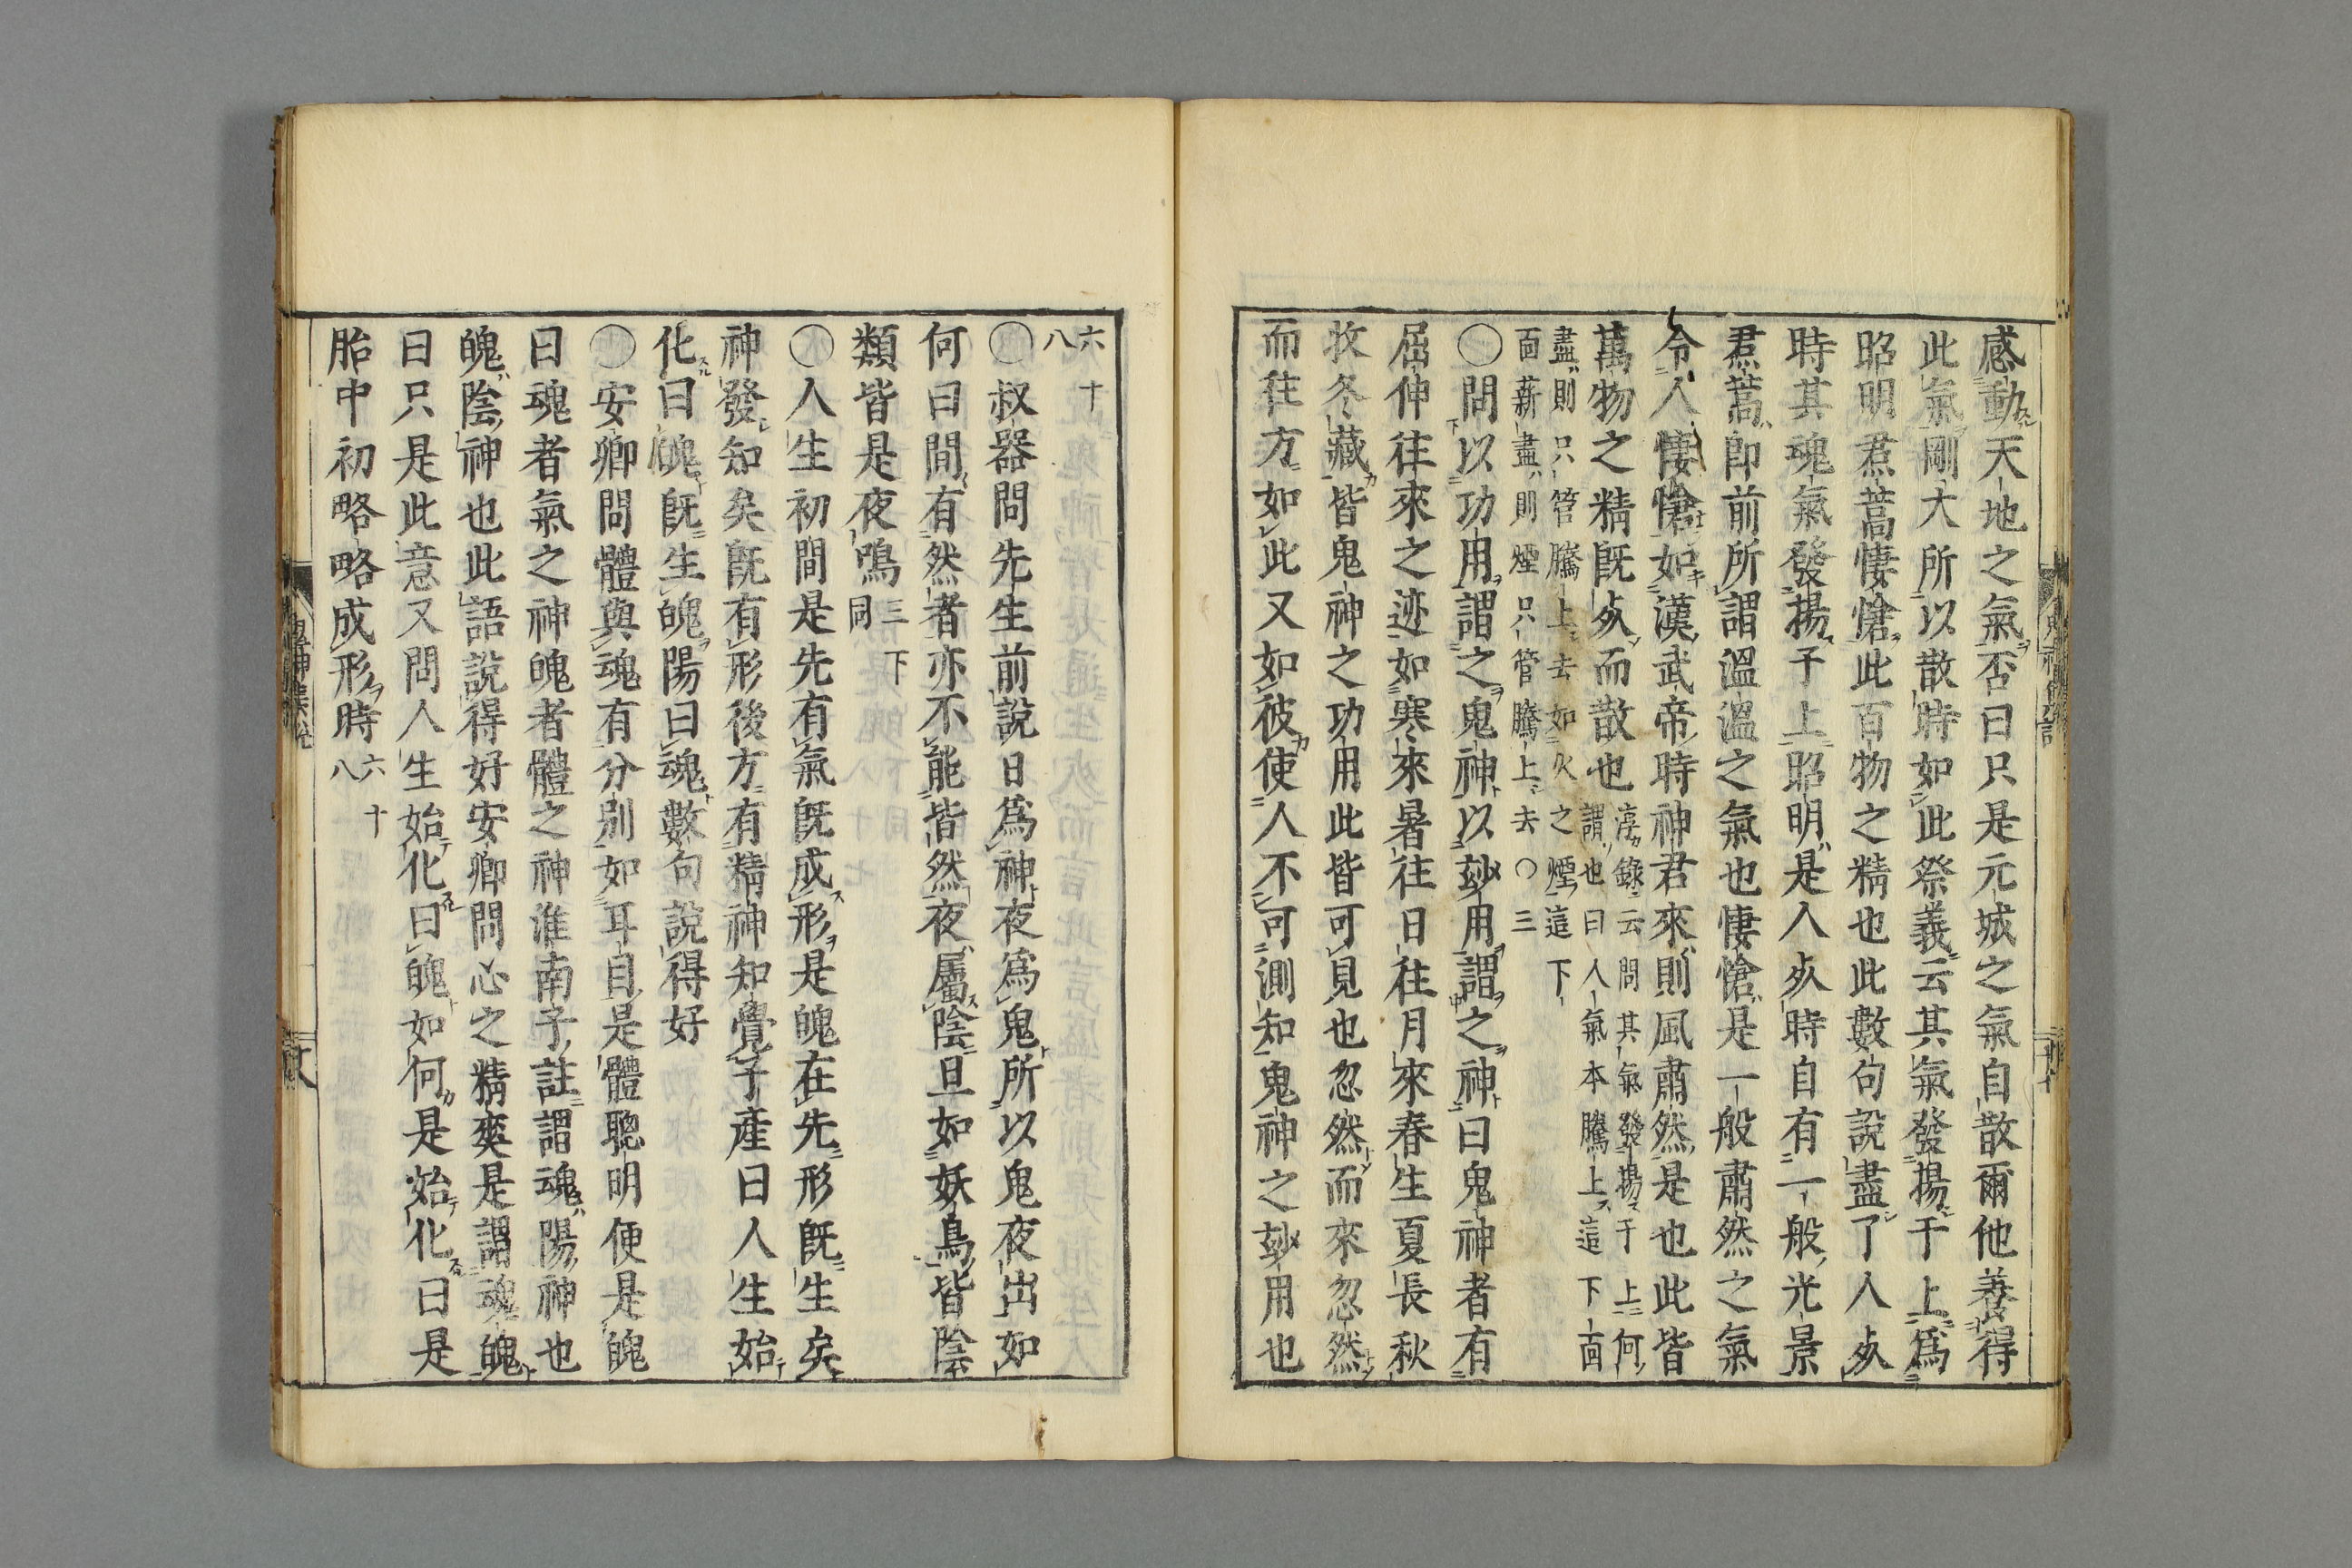 感動天地之氣否曰只是元城之氣自散爾他養得
此氣剛大所以散時如此祭義云其氣發揚于上爲
昭明焄蒿悽愴此百物之精也此數句說盡了人㱦
時其魂氣發揚于上昭明是人㱦時自有一般光景
焄蒿卽前所謂溫溫之氣也悽愴是一般肅然之氣
令人悽愴如漢武帝時神君來則風肅然是也此皆
萬物之精旣㱦而散也
淳錄云問其氣發揚于上何
謂也曰人氣本騰上這下面
盡則只管騰上去如火之煙這下
面薪盡則煙只管騰上去〇三
〇問以功用謂之鬼神以玅用謂之神曰鬼神者有
屈伸往來之迹如寒來暑往日往月來春生夏長秋
收冬藏皆鬼神之功用此皆可見也忽然而來忽然
而往方如此又如彼使人不可測知鬼神之玅用也
六十
八
〇叔器問先生前說日爲神夜爲鬼所以鬼夜出如
何曰間有然者亦不能皆然夜屬陰且如妖鳥皆陰
類皆是夜鳴
三下
同
〇人生初間是先有氣旣成形是魄在先形旣生矣
神發知矣旣有形後方有精神知覺子產曰人生始
化曰魄旣生魄陽曰魂數句說得好
〇安卿問體與魂有分別如耳目是體聰明便是魄
曰魂者氣之神魄者體之神淮南子註謂魂陽神也
魄陰神也此語說得好安卿問心之精爽是謂魂魄
曰只是此意又問人生始化曰魄如何是始化曰是
胎中初略略成形時
六十
八